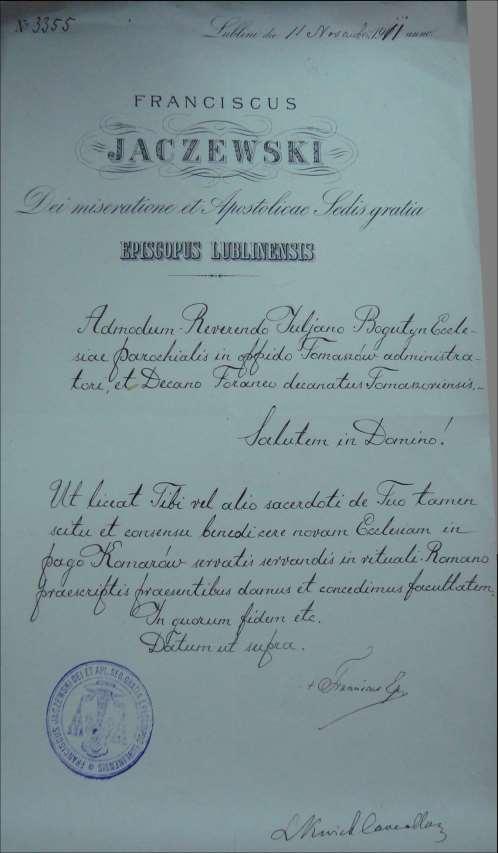 No 3355
Lublini die 11 Novembr. 1911 anno
FRANCISCUS
JACZEWSKI
Dei miseratione et Apostolicae Sedis gratia
EPISCOPUS LUBLINENSIS
Admodum Reverendo Juljano Bogutyn Eccle-
siae parochialis in oppido Tomaszów administra-
tori, et Decano Foraneo decanatus Tomaszoviensis.-
Salutem in Domino!
Ut liceat Tibi vel alio sacerdoti de Tuo tamen
scitu et consensu benedicere novam Ecclesiam in
pago Komarów servatis servandis in rituali Romano
praescriptis praesentibus damus et concedimus facultatem.
In quorum fidem etc.
Datum ut supra.
+ Franciscus Ep
FRANCISCUS JACZEWSKI DEI ET AP. SED. GRATIA EPISCOPUS LUBLINENSIS